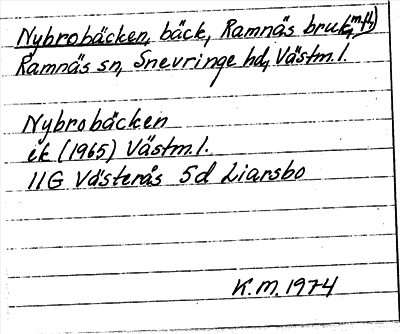 Nybrobäcken, bäck, Ramnäs bruk, m.fl.,
Ramnäs sn, Snevringe hd, Västm.l.
Nybrobäcken
ek (1965) Västm.l.
11G Västerås 5d Liarsbo
K.M. 1974